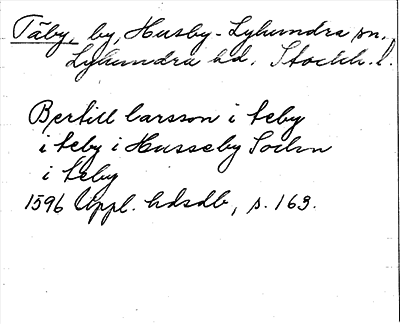 Täby, by, Husby-Lyhundra sn.,
Lyhundra hd. Stockh. l.
Bertill larsson i teby
i teby i Husseby Sochn
i teby
1596 Uppl. hdsdb, s. 163.